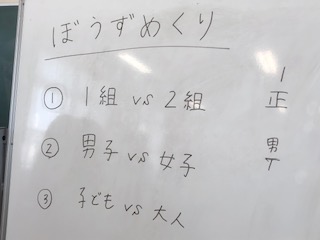 ぼうずめくり
① 1組 vs 2組
1
正
② 男子 vs 女子
男
T
③ 子ども vs 大人